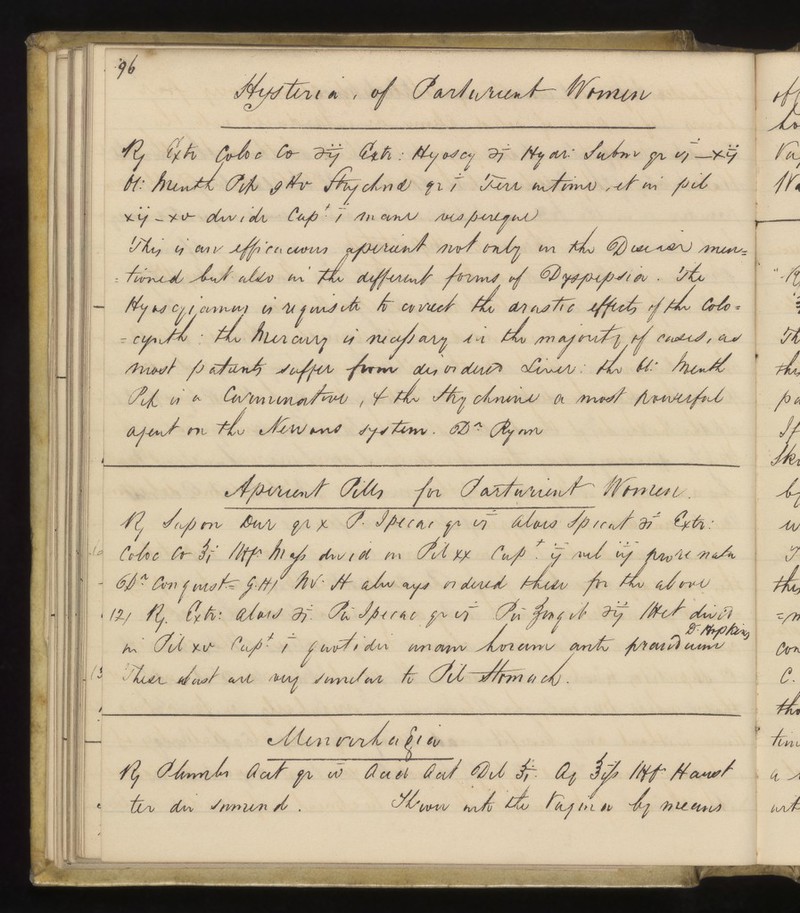 96
Hysteria, of Parturient Women
℞ Extr Coloc Co ʒij Extr: Hyoscy ʒi Hydr: Subm gr vj — xij
Ol: Menth Pip gtt v Strychnæ gr i Tere intime, et in pil
xij – xv divide Capt i mane vespereque
This is an efficacious aperient not only in the Disease men=
=tioned but also in the different forms of Dyspepsia. The
Hyoscyjamus is requisite to correct the drastic effects of the Colo=
=cynth: the Mercury is necessary in the majority of cases, as
most patients suffer from disordered Liver: the Ol: Menth
Pip is a Carminative, & the Strychnine a most powerful
agent on the Nervous system. Dr Ryan
Aperient Pills for Parturient Women.
℞ Sapon Dur gr x P. Ipecac gr vi Aloes Spicat ʒi Extr:
Coloc Co ʒi Mft Mass divid in Pil xx Capt ij vel iij pro re nata
Dr Conquest = G.H) W. H always ordered these for the above
12) ℞. Extr: Aloes ʒi. Pu Ipecac gr vi Pu Zingib ʒij Mft divid
in Pil xv Capt i quotidie unam horam ante prandium Dr Hopkins
These last are very similar to Pil Stomach.
Menorrhagia
℞ Plumbi Acet gr iv Acid Acet Dil ʒi. Aq ℥iſs Mft Haust
ter die sumend. Throw into the Vagina by means